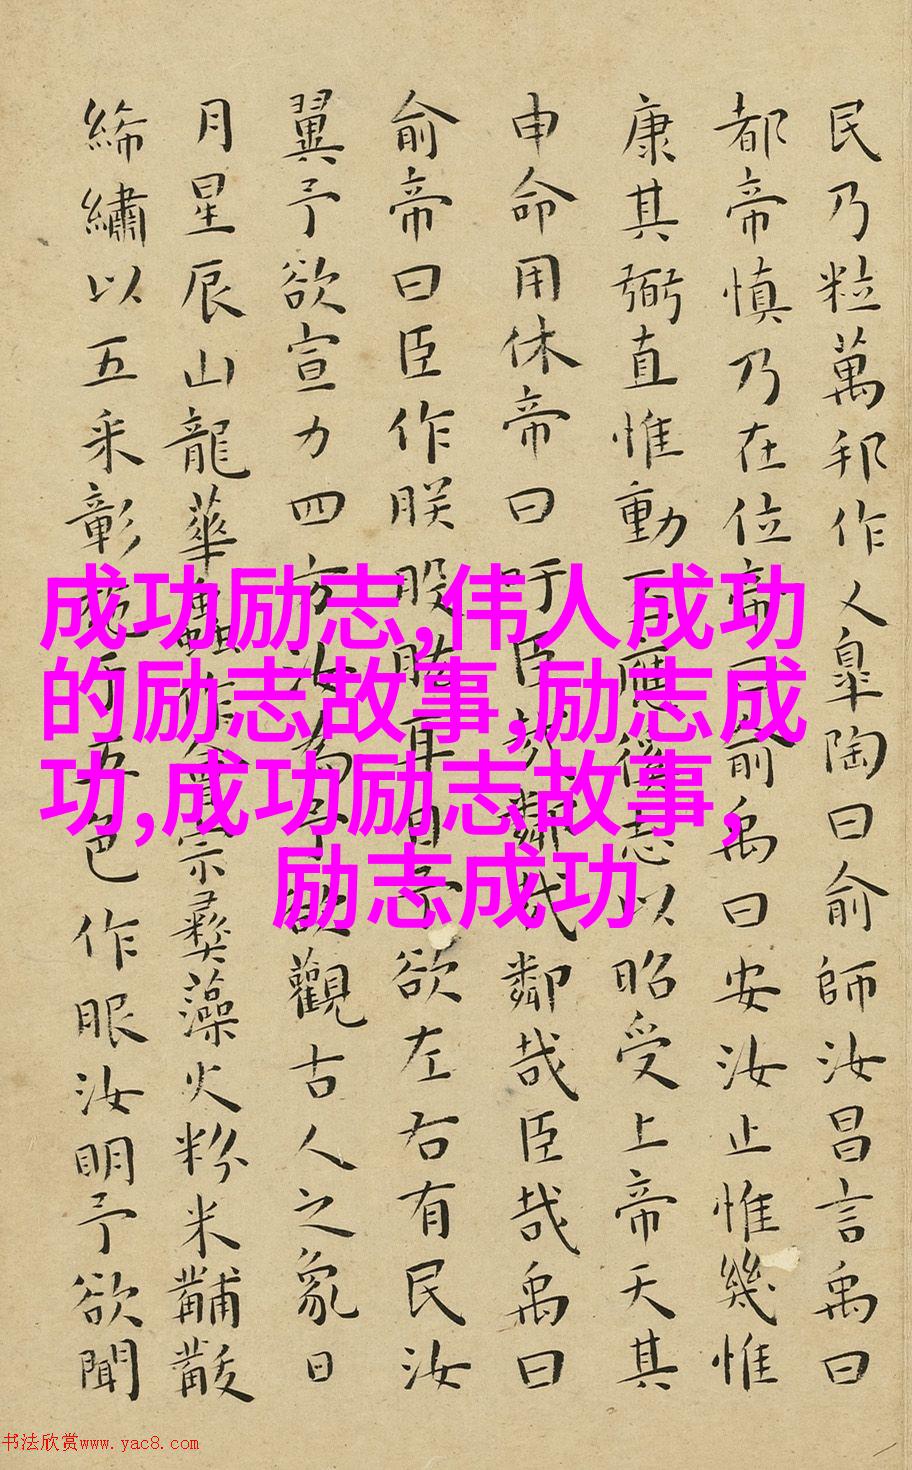 民乃粒萬邦作乂皐陶曰俞師汝昌言禹曰
都帝慎乃在位帝曰俞禹曰安汝止惟幾惟
康其弼直惟動丕應徯志以昭受上帝天其
申命用休帝曰吁臣哉鄰哉鄰哉臣哉禹曰
俞帝曰臣作朕股肱耳目予欲左右有民汝
翼予欲宣力四方汝為予欲觀古人之象日
月星辰山龍華蟲作會宗彝藻火粉米黼黻
絺繡以五采彰施于五色作服汝明予欲聞
成功励志,伟人成功
的励志故事,励志成
功,成功励志故事,
励志成功
书法欣赏www.yac8.com